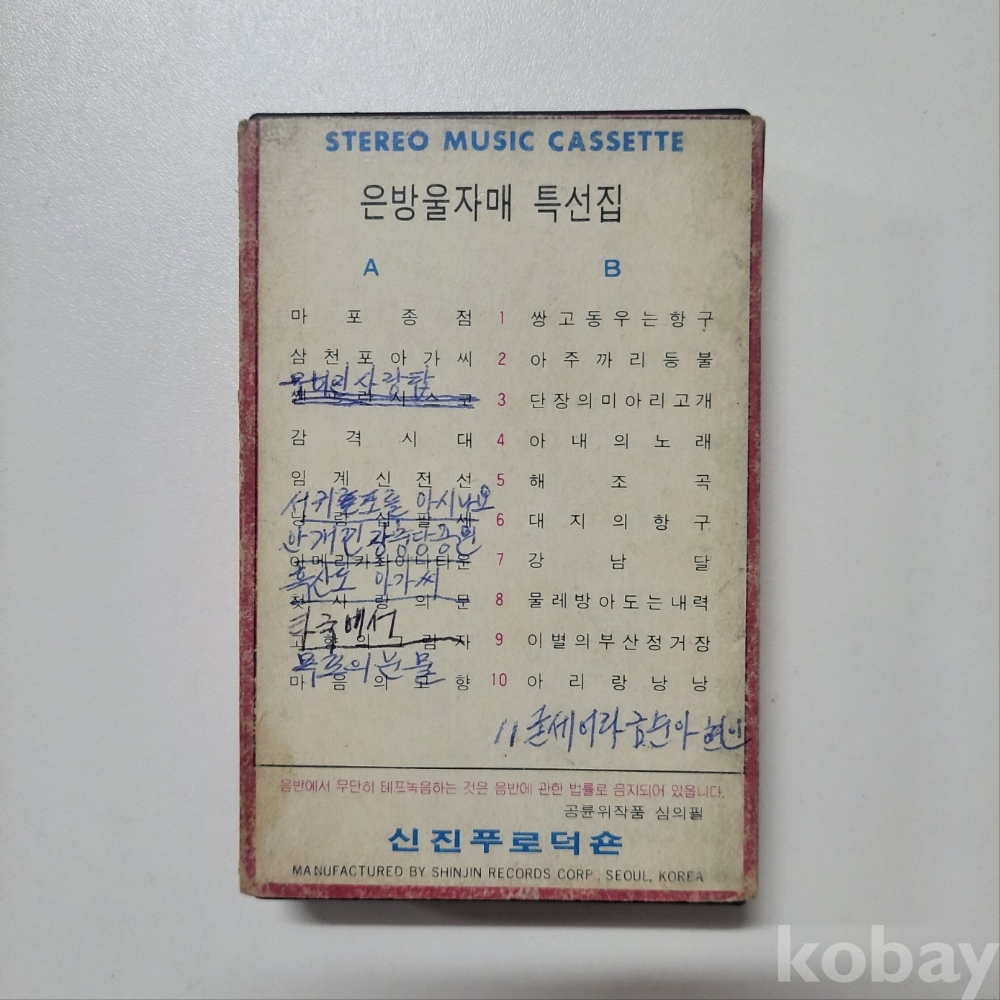 STEREO MUSIC CASSETTE
은방울자매 특선집
A B
마포종점 1 쌍고동우는항구
삼천포아가씨 2 아주까리등불
사랑탑
3 단장의미아리고개
감격시대 4 아내의노래
임계신전선 5 해조곡
아시나요
낭랑십팔세 6 대지의항구
안개낀 장충당공원
아메리카차이나타운 7 강남달
흑산도 아가씨
첫사랑의문 8 물레방아도는내력
고향의그림자 9 이별의부산정거장
목포의눈물
마음의고향 10 아리랑낭낭
11 굳세어라 금순아 현인
음반에서 무단히 테프녹음하는 것은 음반에 관한 법률로 금지되어 있읍니다.
공륜위작품 심의필
신진푸로덕숀
MANUFACTURED BY SHINJIN RECORDS CORP., SEOUL, KOREA
kobay